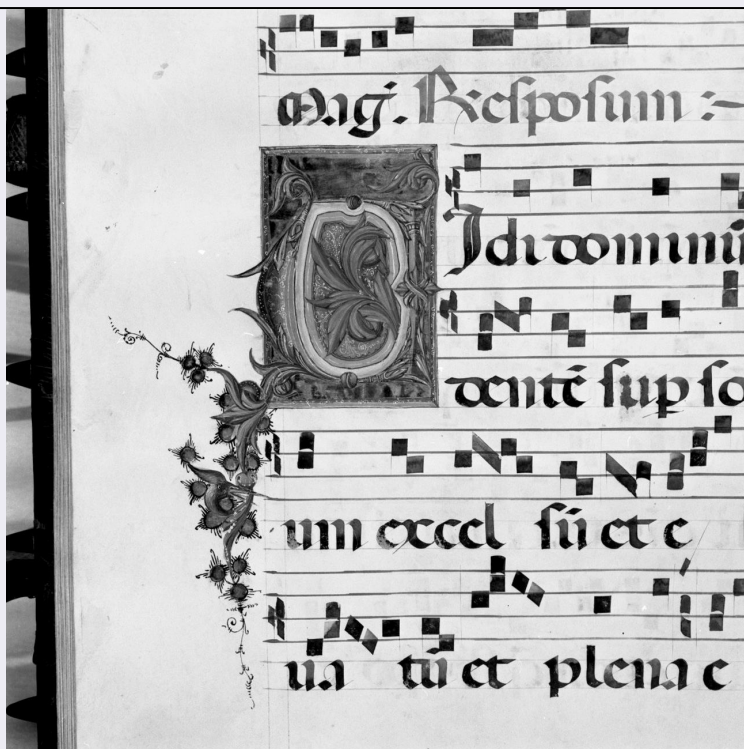 Mag. Resposum :-
Idi dominū
dentē sup so
um excel sū et e
ua tū et plena e